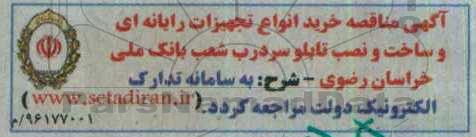 آگهی مناقصه خرید انواع تجهیزات رایانه ای
و ساخت و نصب تابلو سردرب شعب بانک ملی
خراسان رضوی - شرح: به سامانه تدارک
الکترونیک دولت مراجعه گردد. (www.setadiran.ir)
۹۶۱۷۷۰۰۱/م